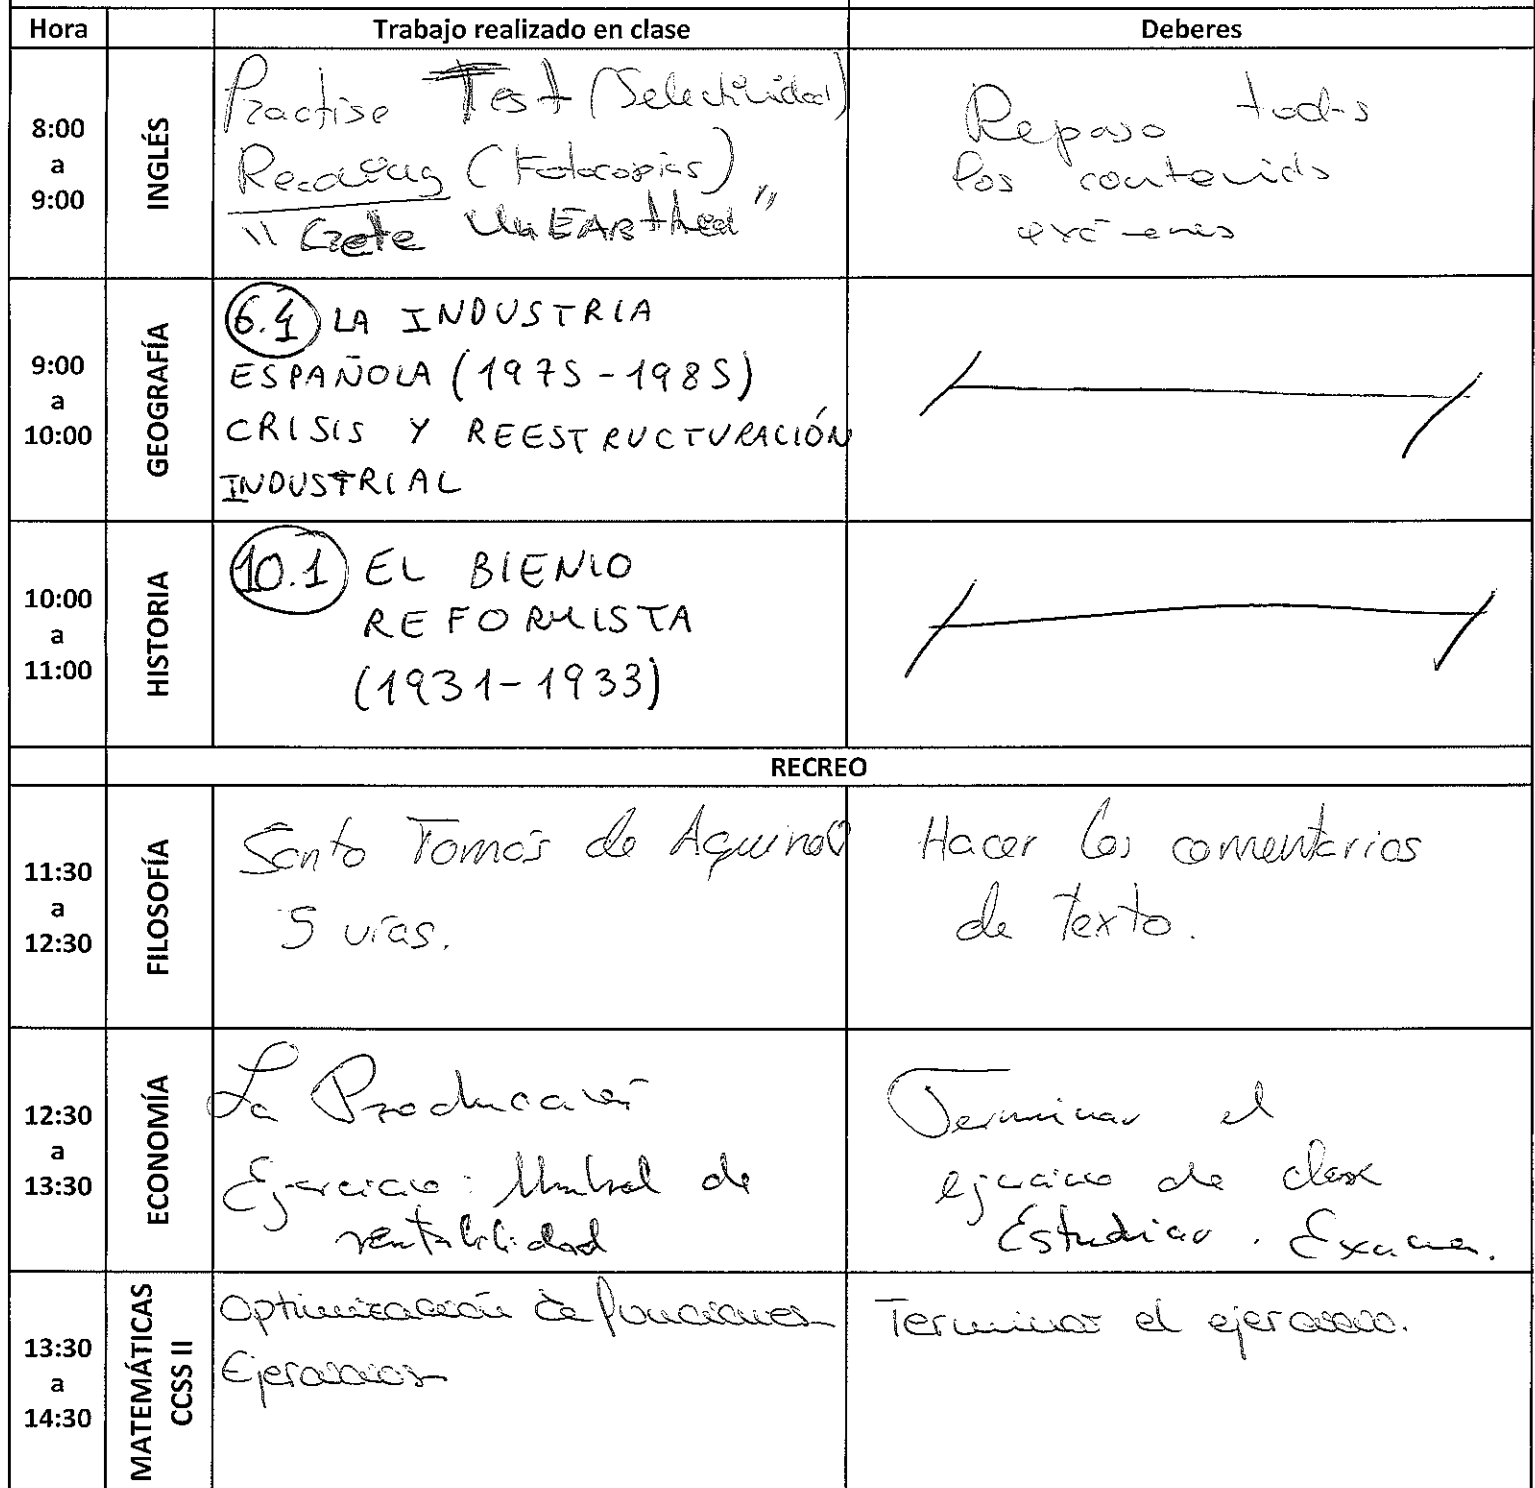 Hora Trabajo realizado en clase Deberes
8:00 a 9:00
INGLÉS
Practise Test (Selectividad)
Reading (Fotocopias)
"Crete UnEARthed"
Reposo todos
los contenidos
exámenes
9:00 a 10:00
GEOGRAFÍA
6.4 LA INDUSTRIA
ESPAÑOLA (1975-1985)
CRISIS Y REESTRUCTURACIÓN
INDUSTRIAL
10:00 a 11:00
HISTORIA
10.1 EL BIENIO
REFORMISTA
(1931-1933)
RECREO
11:30 a 12:30
FILOSOFÍA
Santo Tomás de Aquino
5 vías.
Hacer los comentarios
de texto.
12:30 a 13:30
ECONOMÍA
La Producción
Ejercicio: Umbral de
rentabilidad
Terminar el
ejercicio de clase
Estudiar. Examen.
13:30 a 14:30
MATEMÁTICAS
CCSS II
Optimización de funciones
Ejercicios
Terminar el ejercicio.